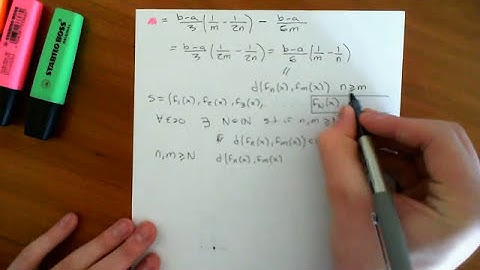 STABILO BOSS
STABILO BOSS
= b-a/3 (1/m - 1/2n) - b-a/6m
= b-a/3 (1/2m - 1/2n) = b-a/6 (1/m - 1/n)
//
d(fn(x), fm(x)) n≥m
S = (f1(x), f2(x), f3(x), fN(x)
∀ε>0 ∃ N∈IN s.t if n,m≥
d(fn(x), fm(x)) <
n,m≥N d(fn(x), fm(x)